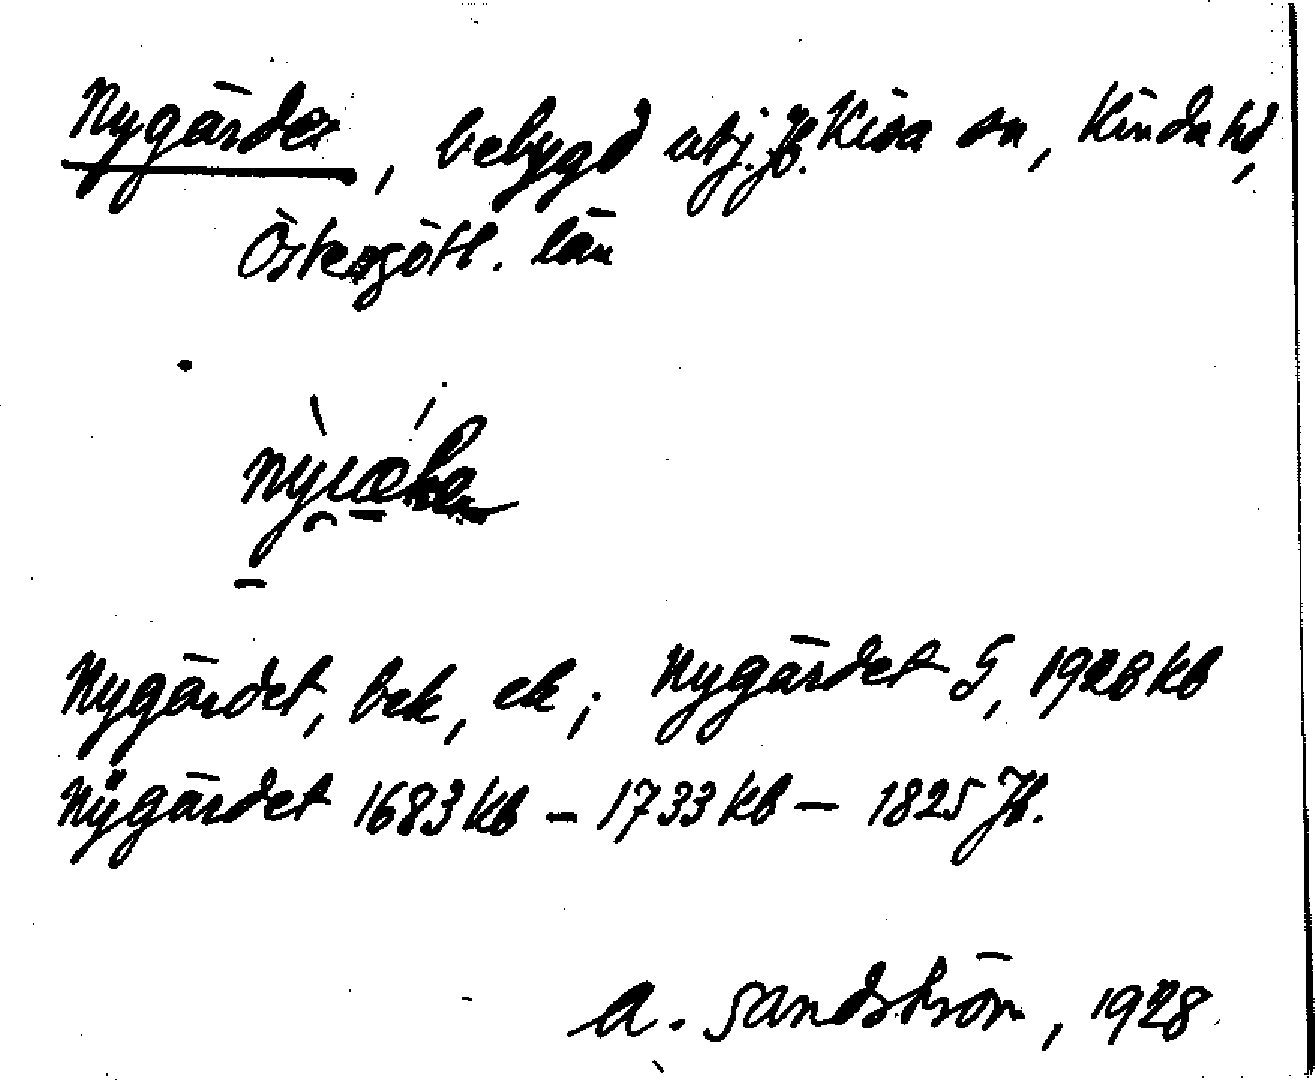 Nygärdet, bebygd utj. Jb. Kisa sn, Kinda hd,
Östergötl. län
Nygärdet, bek, ek; Nygärdet S, 1928 kb
Nÿgärdet 1683 kb – 1733 kb – 1825 Jb.
A. Sandström, 1928